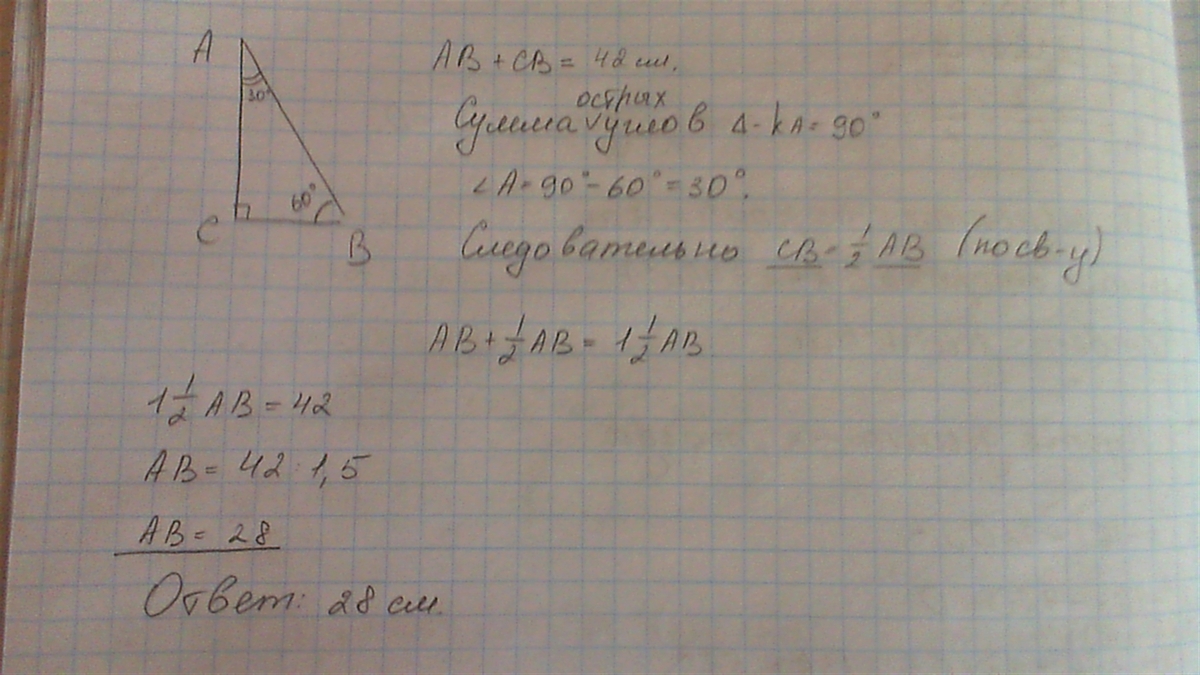 A
30°
60°
C
B
AB + CB = 42 см.
Сумма ∨ углов Δ-ka = 90°
острых
∠A = 90° - 60° = 30°.
Следовательно CB = 1/2 AB (по св-у)
AB + 1/2 AB = 1 1/2 AB
1 1/2 AB = 42
AB = 42 : 1,5
AB = 28
Ответ: 28 см.